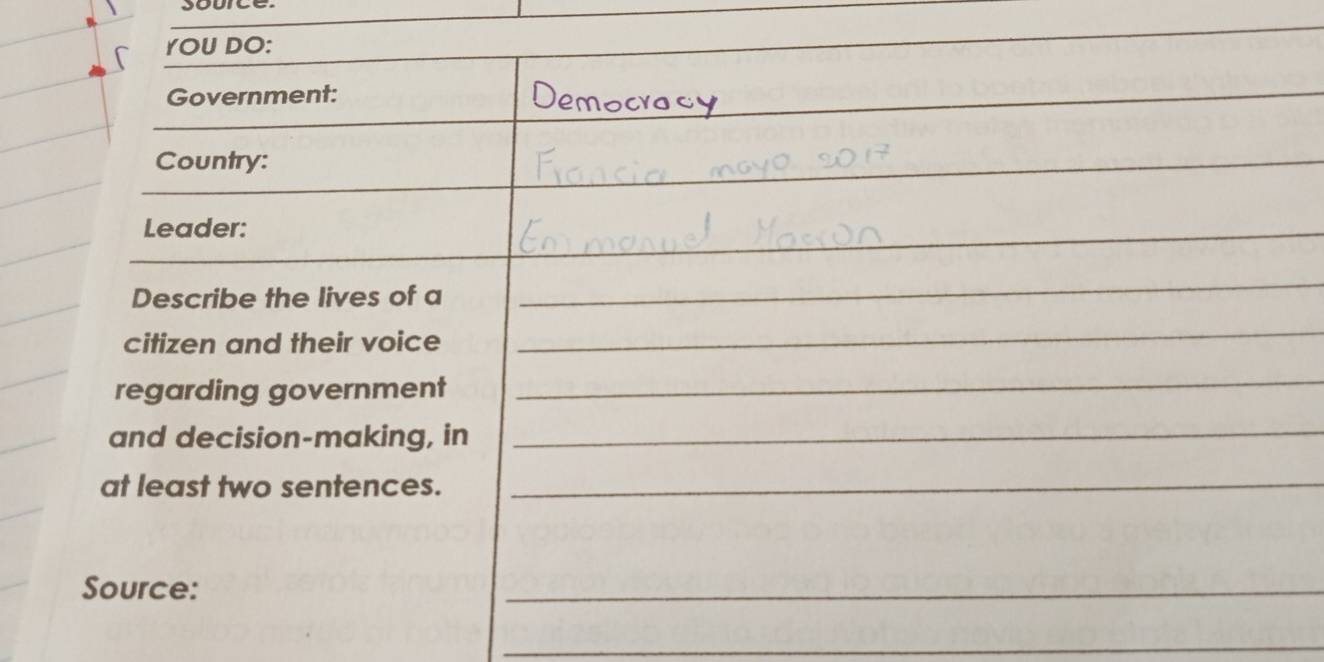 Source:
YOU DO:
Government: Democracy
Country: Francia mayo 2017
Leader: Emmanuel Macron
Describe the lives of a
citizen and their voice
regarding government
and decision-making, in
at least two sentences.
Source: